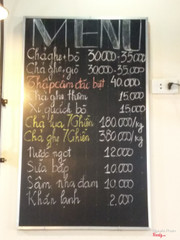 MENU
Chả ghẹ + bò 30.000-35.000
Chả ghẹ + giò 30.000-35.000
Thập cẩm đặc biệt 40.000
Chả ghẹ thêm 15.000
15.000
Chả lụa 7Chiến 180.000/kg
Chả ghẹ 7Chiến 380.000/kg
Nước ngọt 12.000
Sữa bắp 10.000
Sâm nha đam 10.000
Khăn lạnh 2.000